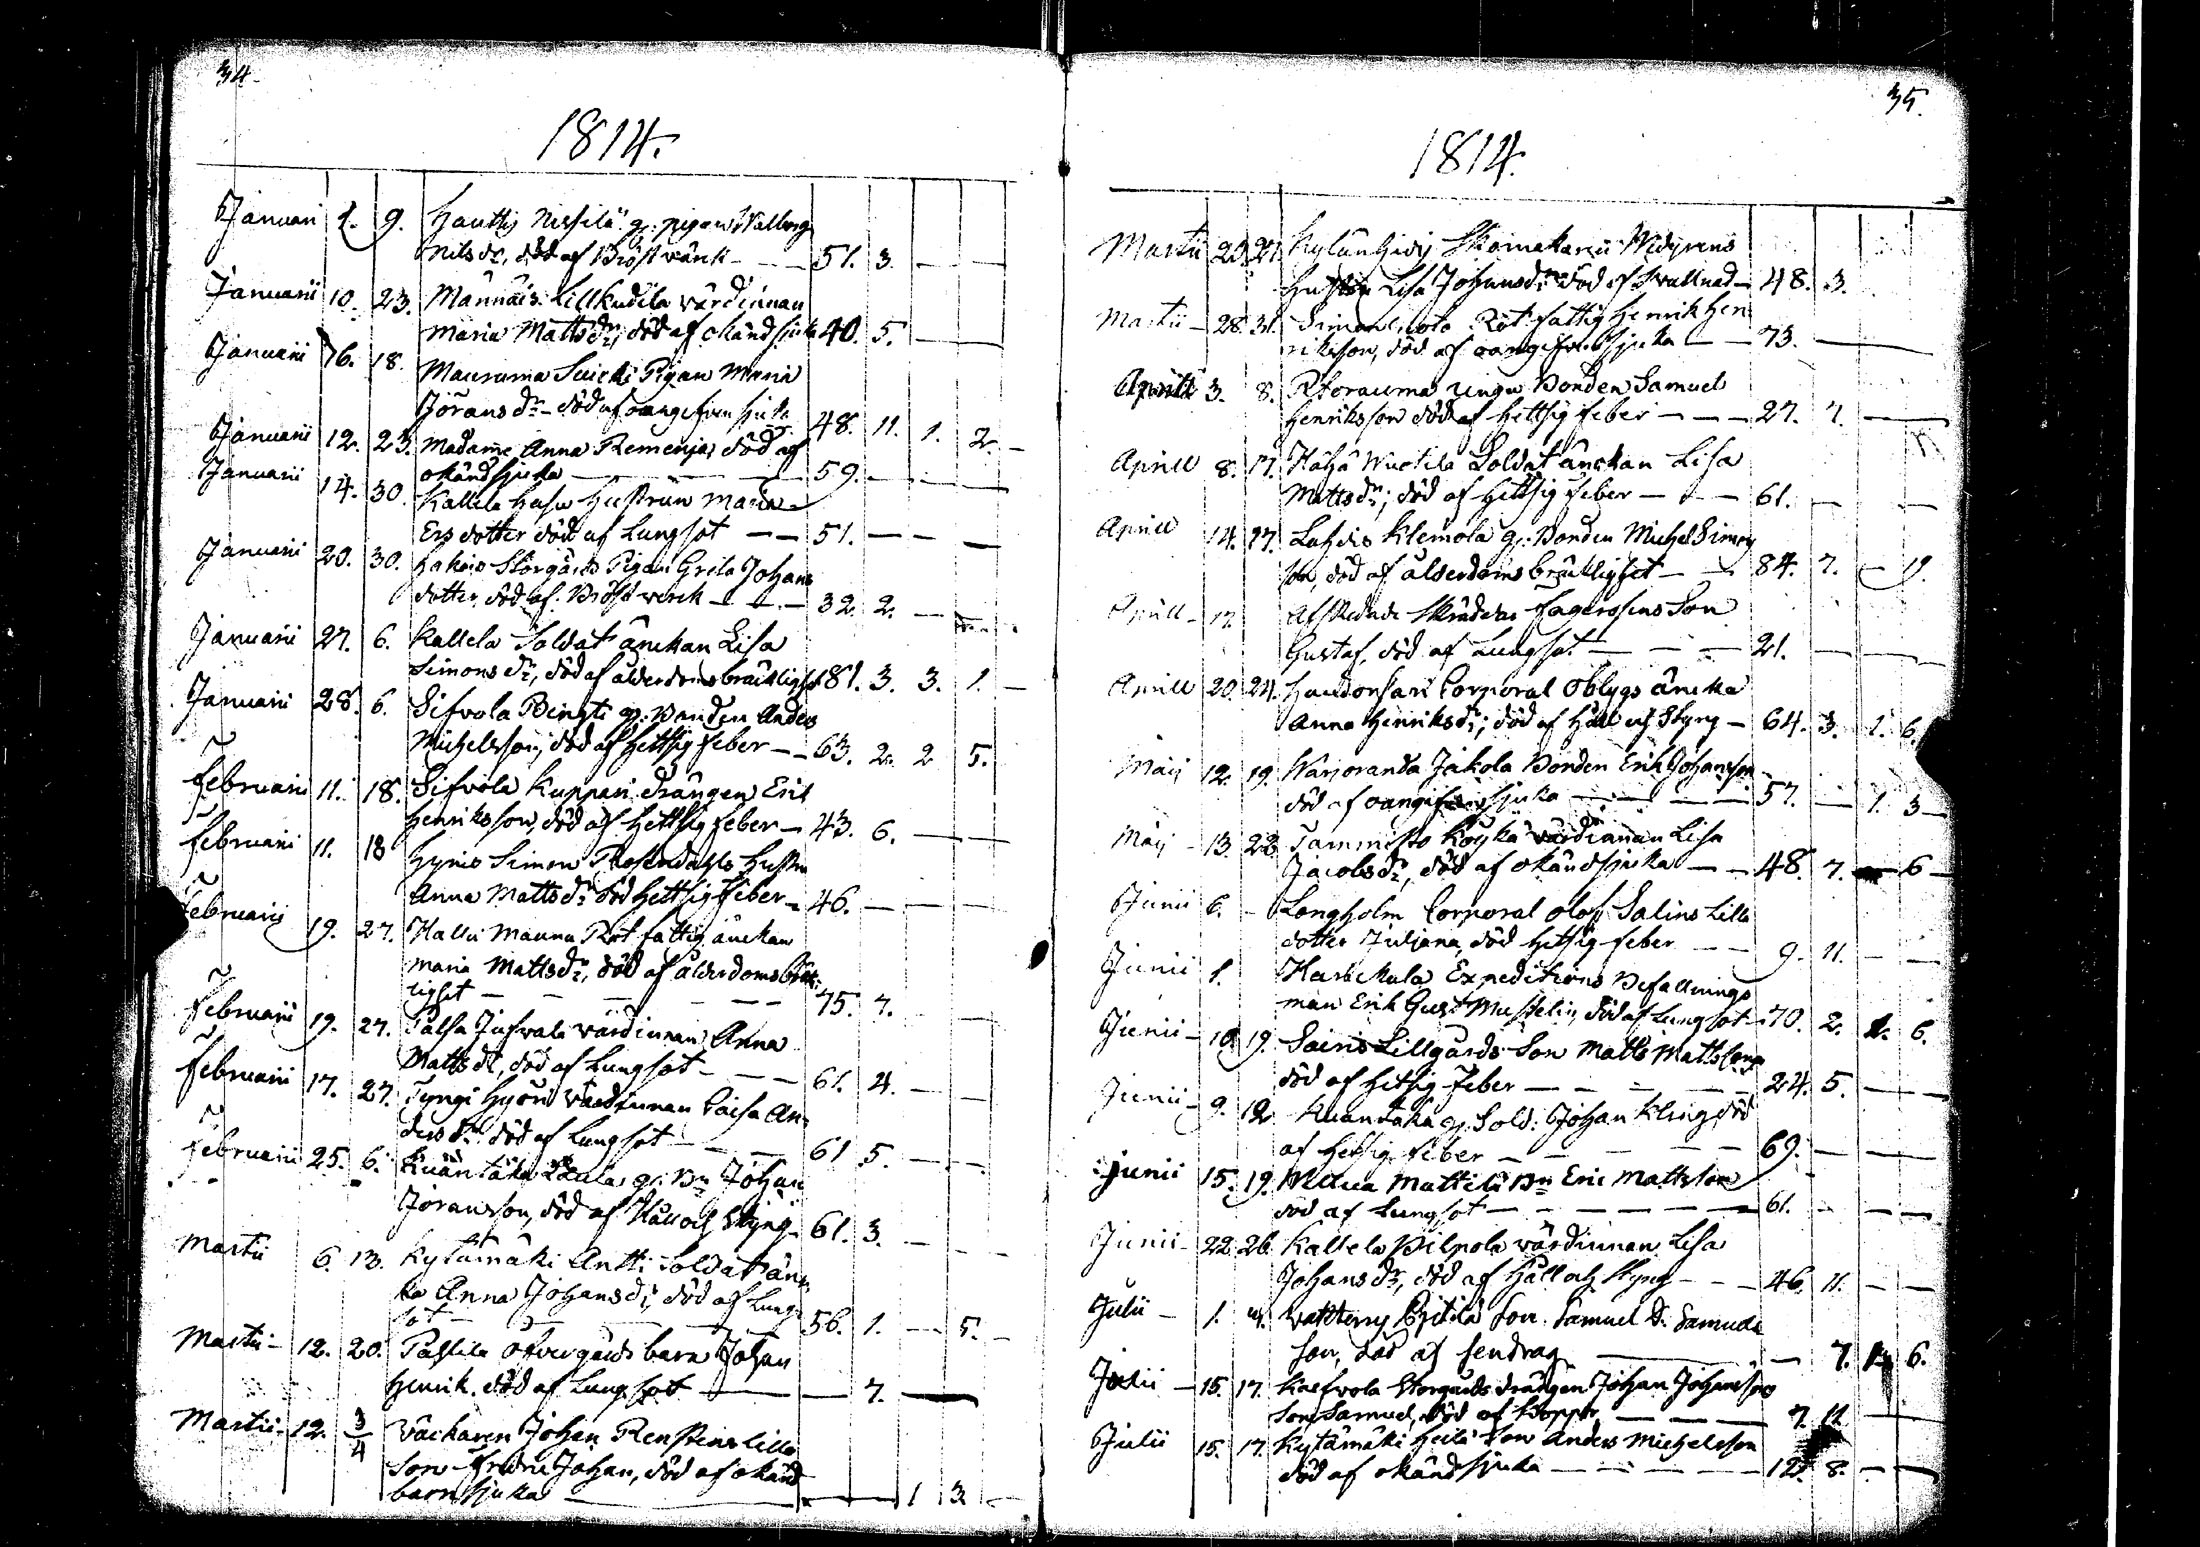 34.
1814.
Januari 1. 9. Hautty Nissilä g. pigan Walborg
Nils dr, död af Bröst värk - - - 51. 3. - -
Januarii 10. 23. Mannais Lillkudila värdinnan
Maria Matts dr, död af okänd sjuka 40. 5. - -
Januarii 16. 18. Mauruma Pigan Maria
Jörans dr - död af oangifven sjuka 48. 11. 1. 2. -
Januarii 12. 23. Madame Anna Remenjas död af
okänd sjuka - - 59. - - -
Januarii 14. 30. Kallela Hasu Hustrun Maria
Ers dotter död af Lungsot - - 51. - - -
Januarii 20. 30. Storgårds Pigan Greta Johans
dotter död af Bröst verk - - - 32. 2. - -
Januarii 27. 6. Kallela Soldat änckan Lisa
Simons dr, död af ålderdoms bräcklighet 81. 3. 3. 1. -
Januarii 28. 6. Sifvola Bengti g. Bonden Anders
Michelsson, död af hettsig feber - - 63. 2. 2 5.
Februarii 11. 18. Sifvola Kuppari drängen Erik
Henriksson, död af hettsig feber - 43. 6. - -
Februarii 11. 18 Simon Rosendahls Hustru
Anna Matts dr död hettsig feber - 46. - - -
Februarii 19. 27. Hallu Manna Rot fattig änckan
Maria Matts dr, död af ålderdoms bräck-
lighet - - - - - 75. 7. - -
Februarii 19. 27. Palsa Jufvala värdinnan Anna
Matts dr, död af Lungsot - - - 61. 4. - -
Februarii 17. 27. Tyngi Hyöri värdinnan Caisa An-
ders dr död af Lungsot - - 61 5. - -
Februarii 25. 6. Kuäntäkä g. Bn Johan
Joransson, död af Håll och Styng - 61. 3. - -
Martii 6. 13. Kytämäki Antti Soldat än-
ka Anna Johans dr, död af Lung-
sot - - - 56. 1. - 5. -
Martii - 12. 20. Påhlila öfvergårds barn Johan
Henrik. död af Lungsot - - 7. -
Martii - 12. 3/4 Väckaren Johan Renstens lilla
Son Johan, död af okänd
barnsjuka - - 1 3. -
35.
1814.
Martii 20. 27. Skomakarens Widgrens
Hustru Lisa Johans dr död af Svullnad - 48. 3.
Martii - 28. 31. Simon Rot fattig Henrik Hen
riksson, död af oangifven sjuka - - 73. -
Aprill 3. 8. Storauma Unga Bonden Samuel
Henriksson död af hettsig feber - - - 27. 7. -
Aprill 8. 17. Wuotila Soldat änckan Lisa
Matts dr; död af hettsig feber - - - 61. - -
Aprill 14. 17. Lahdis Klemola g. Bonden Michel Simons
son, död af ålderdoms bräcklighet - - 84. 7. - 19.
Aprill - 17. Afskedade Skräddar Fagerssens Son
Gustaf, död af Lungsot - - - 21. - - -
Aprill 20. 24. Haudonsari Corporal Oblygs äncka
Anna Henriks dr; död af håll och Styng - 64. 3. 1. 6.
Maij 12. 19. Warjoranda Jakola Bonden Erik Johansson
död af oangifven sjuka - - - - 57. - 1. 3 -
Maij - 13. 22. Tammisto Köykä värdinnan Lisa
Jacobs dr, död af okänd sjuka - - 48. 7. - 6 -
Junii 6. - Longholm Corporal Olof Salins Lilla
dotter Juliana, död hetsig feber - - 9. 11. - -
Junii 1. Expeditions Befallnings
man Erik Gust: Musselin, död af Lungsot - 70. 2. 2. 6.
Junii - 10. 19. Lillgårds Son Matts Mattsson
död af hetsig feber - - - - 24. 5. - -
Junii - 9. 12 Kuantäkä g. Sold: Johan Kling död
af hetsig feber - - - - 69. - - -
Junii 15. 19. Mattila Bn Eric Mattsson
död af Lungsot - - - - - 61. - - -
Junii - 22. 26. Kallela Pilpola värdinnan Lisa
Johans dr, död af håll och styng - - - 46. 11. - -
Julii - 1. Son Samuel Samuels
son, död af sendrag - - 7. 6.
Julii - 15. 17. Kaefvola Storgårds drängen Johan Johansson
Son Samuel, död af Koppor - - - 7. 11. -
Julii 15. 17. Kytämäki Heilä Son Anders Michelsson
död af okänd sjuka - - - - 12. 8. - -